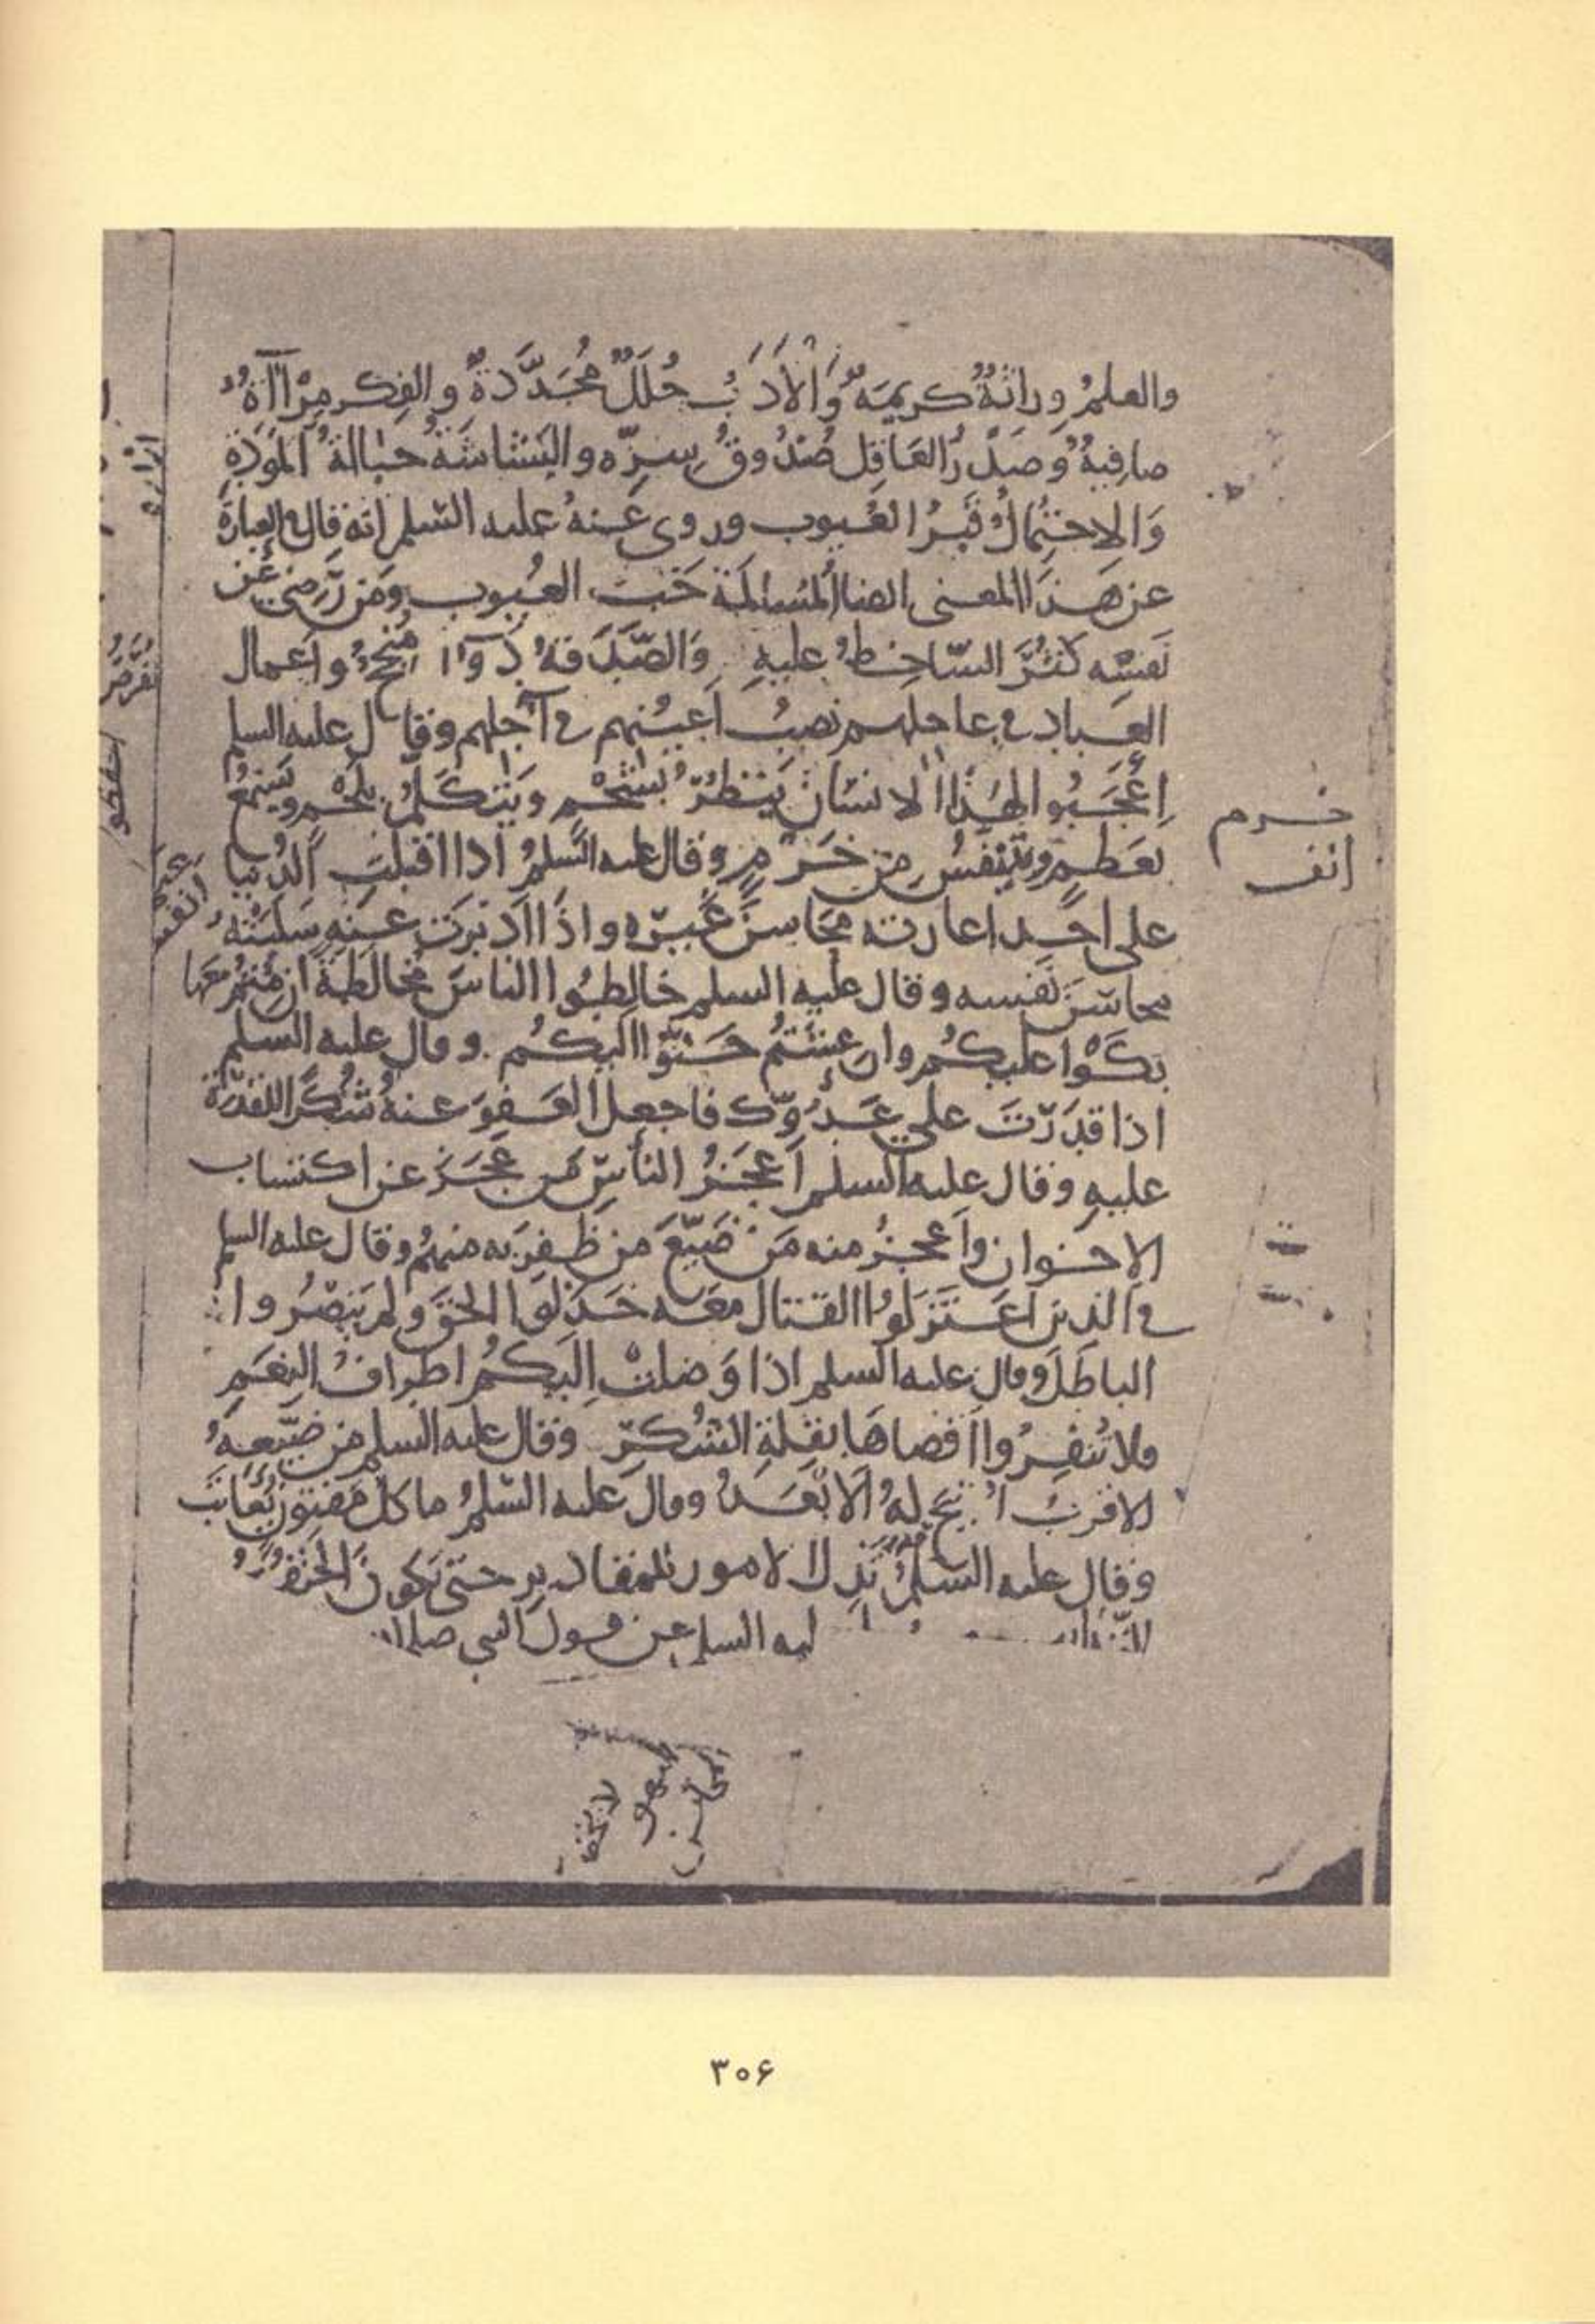 والعلمُ وراثةٌ كريمةٌ وَالآدَابُ حُلَلٌ مُجَدَّدَةٌ والفِكر مِرْآةٌ
صافِيةٌ وَصَدْرُ العَاقِل صُنْدُوقُ سِرِّه والبَشَاشَةُ حبَالةُ المَوَدَّةِ
وَالاِحتِمَالُ قَبْرُ العُيوب وروى عَنهُ عليه السّلم انّه قال في العبارة
عن هَذَا المعنى ايضا المُسَالمَة خَبْءُ العُيوب ومَن رَضِيَ عَن
نَفسِه كَثُرَ السّاخِطُ عليهِ وَالصَّدَقةُ دَوَاءٌ مُنْجِحٌ واَعمال
العِباد في عاجلهم نصبُ اَعيُنِهم في آجِلِهم وقال عليه السلم
اِعْجَبُوا لِهَذَا الانسَان يَنظُرُ بشَحْمٍ ويَتكَلَّمُ بلَحْمٍ ويَسمَعُ
بعَظمٍ ويَتنفّسُ مِن خَرْمٍ وقال عليه السَّلمُ اذا اقبلتِ الدُّنيا
على احَدٍ اعارته مَحَاسِنَ غَيرِه واِذَا ادْبَرَت عَنه سَلبَتْهُ
محاسنَ نَفسِه وقال عليه السلم خالِطُوا الناسَ مُخالَطَةً ان مِتُّم مَعَها
بكَوْا عليكُم وان عِشْتُم حَنّوْا اليكُم وقال عليه السلم
اذا قدَرْتَ على عَدُوّك فاجعل العَفوَ عنهُ شُكرًا للقدرَة
عليهِ وقال عليه السلم اَعجَزُ الناسِ مَن عَجَز عن اكتساب
الاِخوان واَعجزُ منه مَن ضَيَّعَ مَن ظفِرَ به منهُم وقال عليه السلم
في الذين اعتَزلُوا القتال مَعَه خَذلوا الحقَّ ولم يَنصُروا
الباطلَ وقال عليه السلم اذا وَصلتْ اليكُمُ اطرافُ النِعَمِ
فلا تُنفِرُوا اَقصاهَا بقِلّةِ الشُكرِ وقال عليه السلم مَن ضَيَّعَهُ
الاقربُ اُتيحَ لهُ الاَبْعَدُ وقال عليه السّلمُ ما كلّ مَفتونٍ يُعَاتَبُ
وقال عليه السّلمُ تَذِلّ الامور للمقادِيرِ حتى يَكونَ الحَتْفُ
ليه السلم عن قول النبي صلى
خرم
انف
۳۰۶